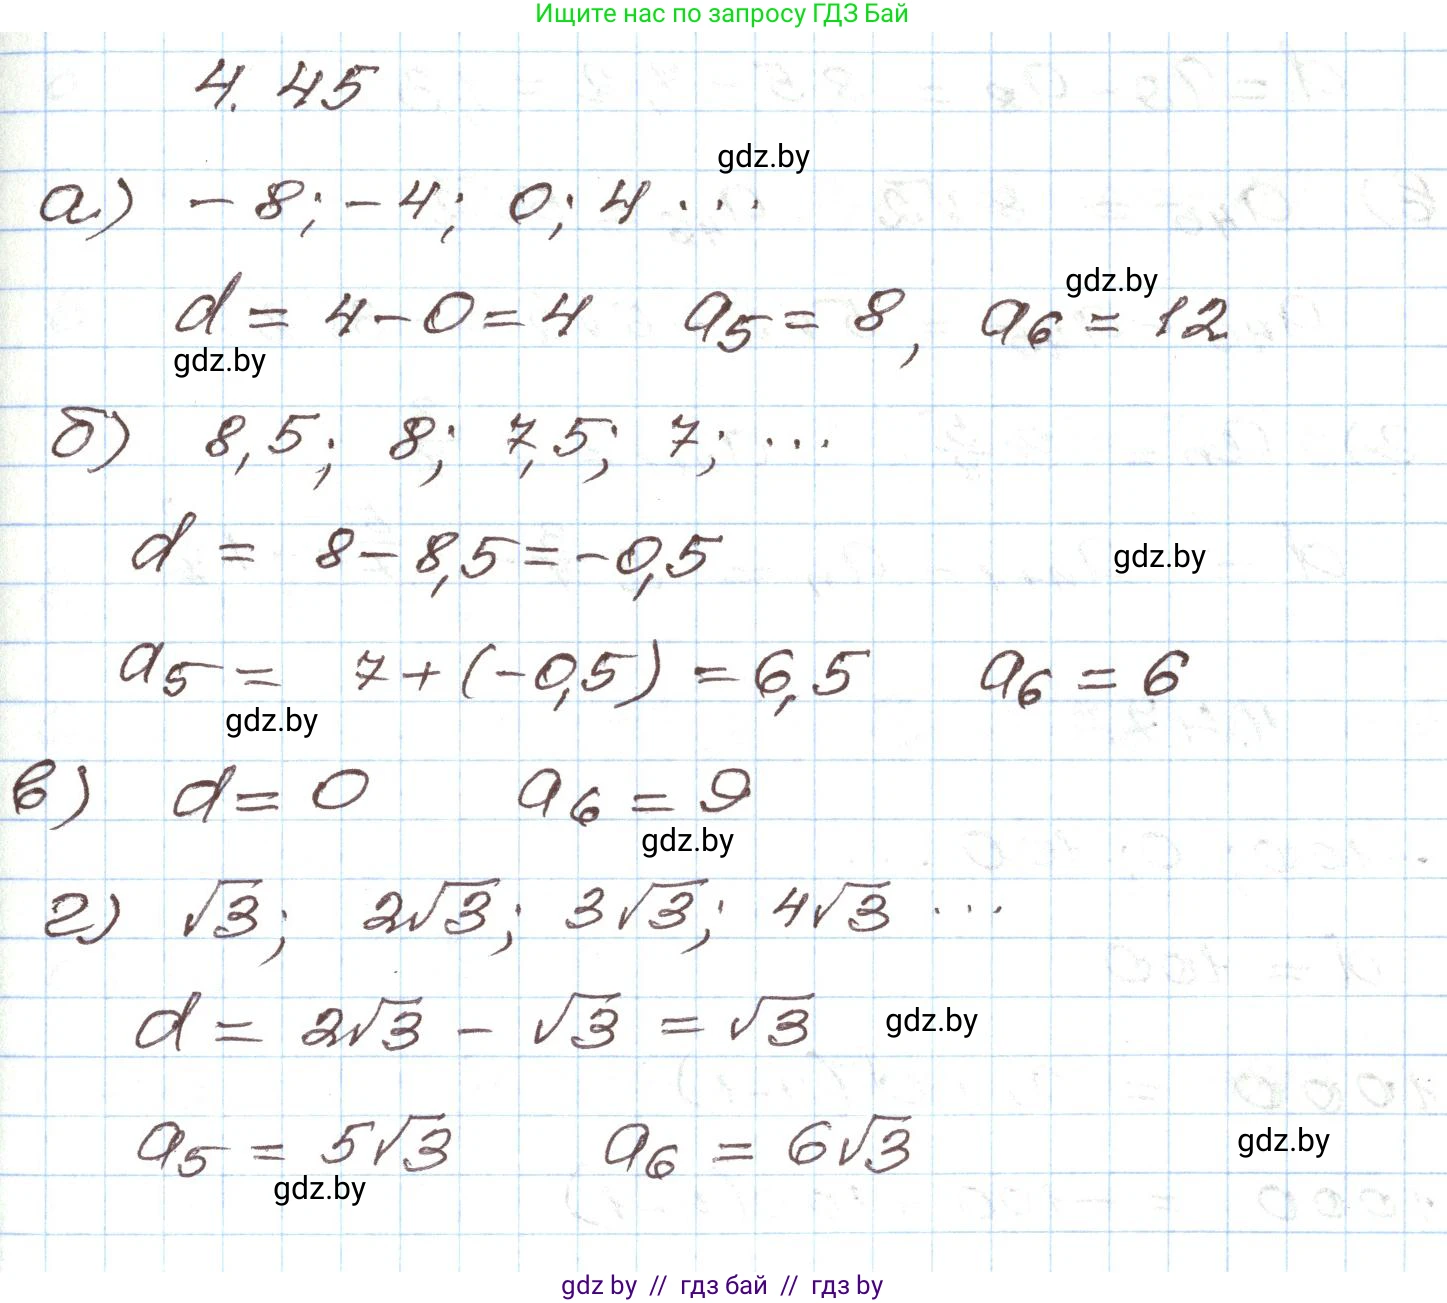 Ищите нас по запросу ГДЗ Бай
4.45
gdz.by
а) -8; -4; 0; 4 ...
gdz.by
d = 4-0=4 a₅= 8, a₆ = 12
gdz.by
б) 8,5; 8; 7,5; 7; ...
d = 8-8,5=-0,5
gdz.by
a₅ = 7+(-0,5) = 6,5 a₆ = 6
gdz.by
в) d=0 a₆ = 9
gdz.by
г) √3; 2√3; 3√3; 4√3 ...
d = 2√3 - √3 = √3
gdz.by
a₅ = 5√3 a₆ = 6√3
gdz.by
gdz.by
gdz by // гдз бай // гдз by